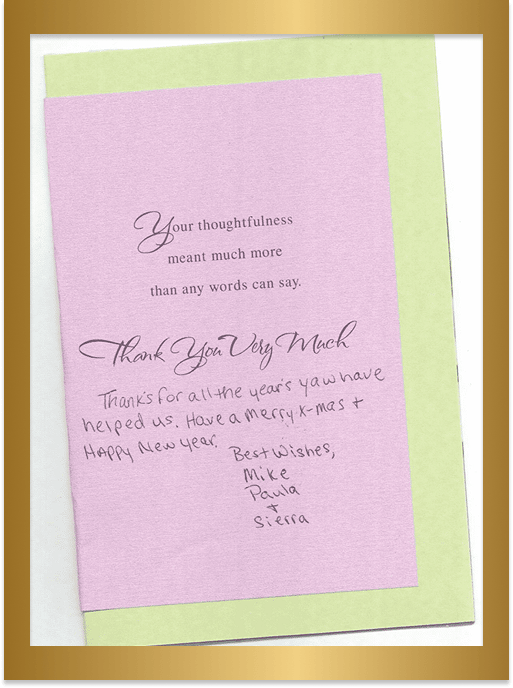 Your thoughtfulness
meant much more
than any words can say.
Thank You Very Much
Thank's for all the year's yaw have
helped us. Have a Merry X-mas +
HAPPY New Year.
Best Wishes,
Mike
Paula
+
Sierra